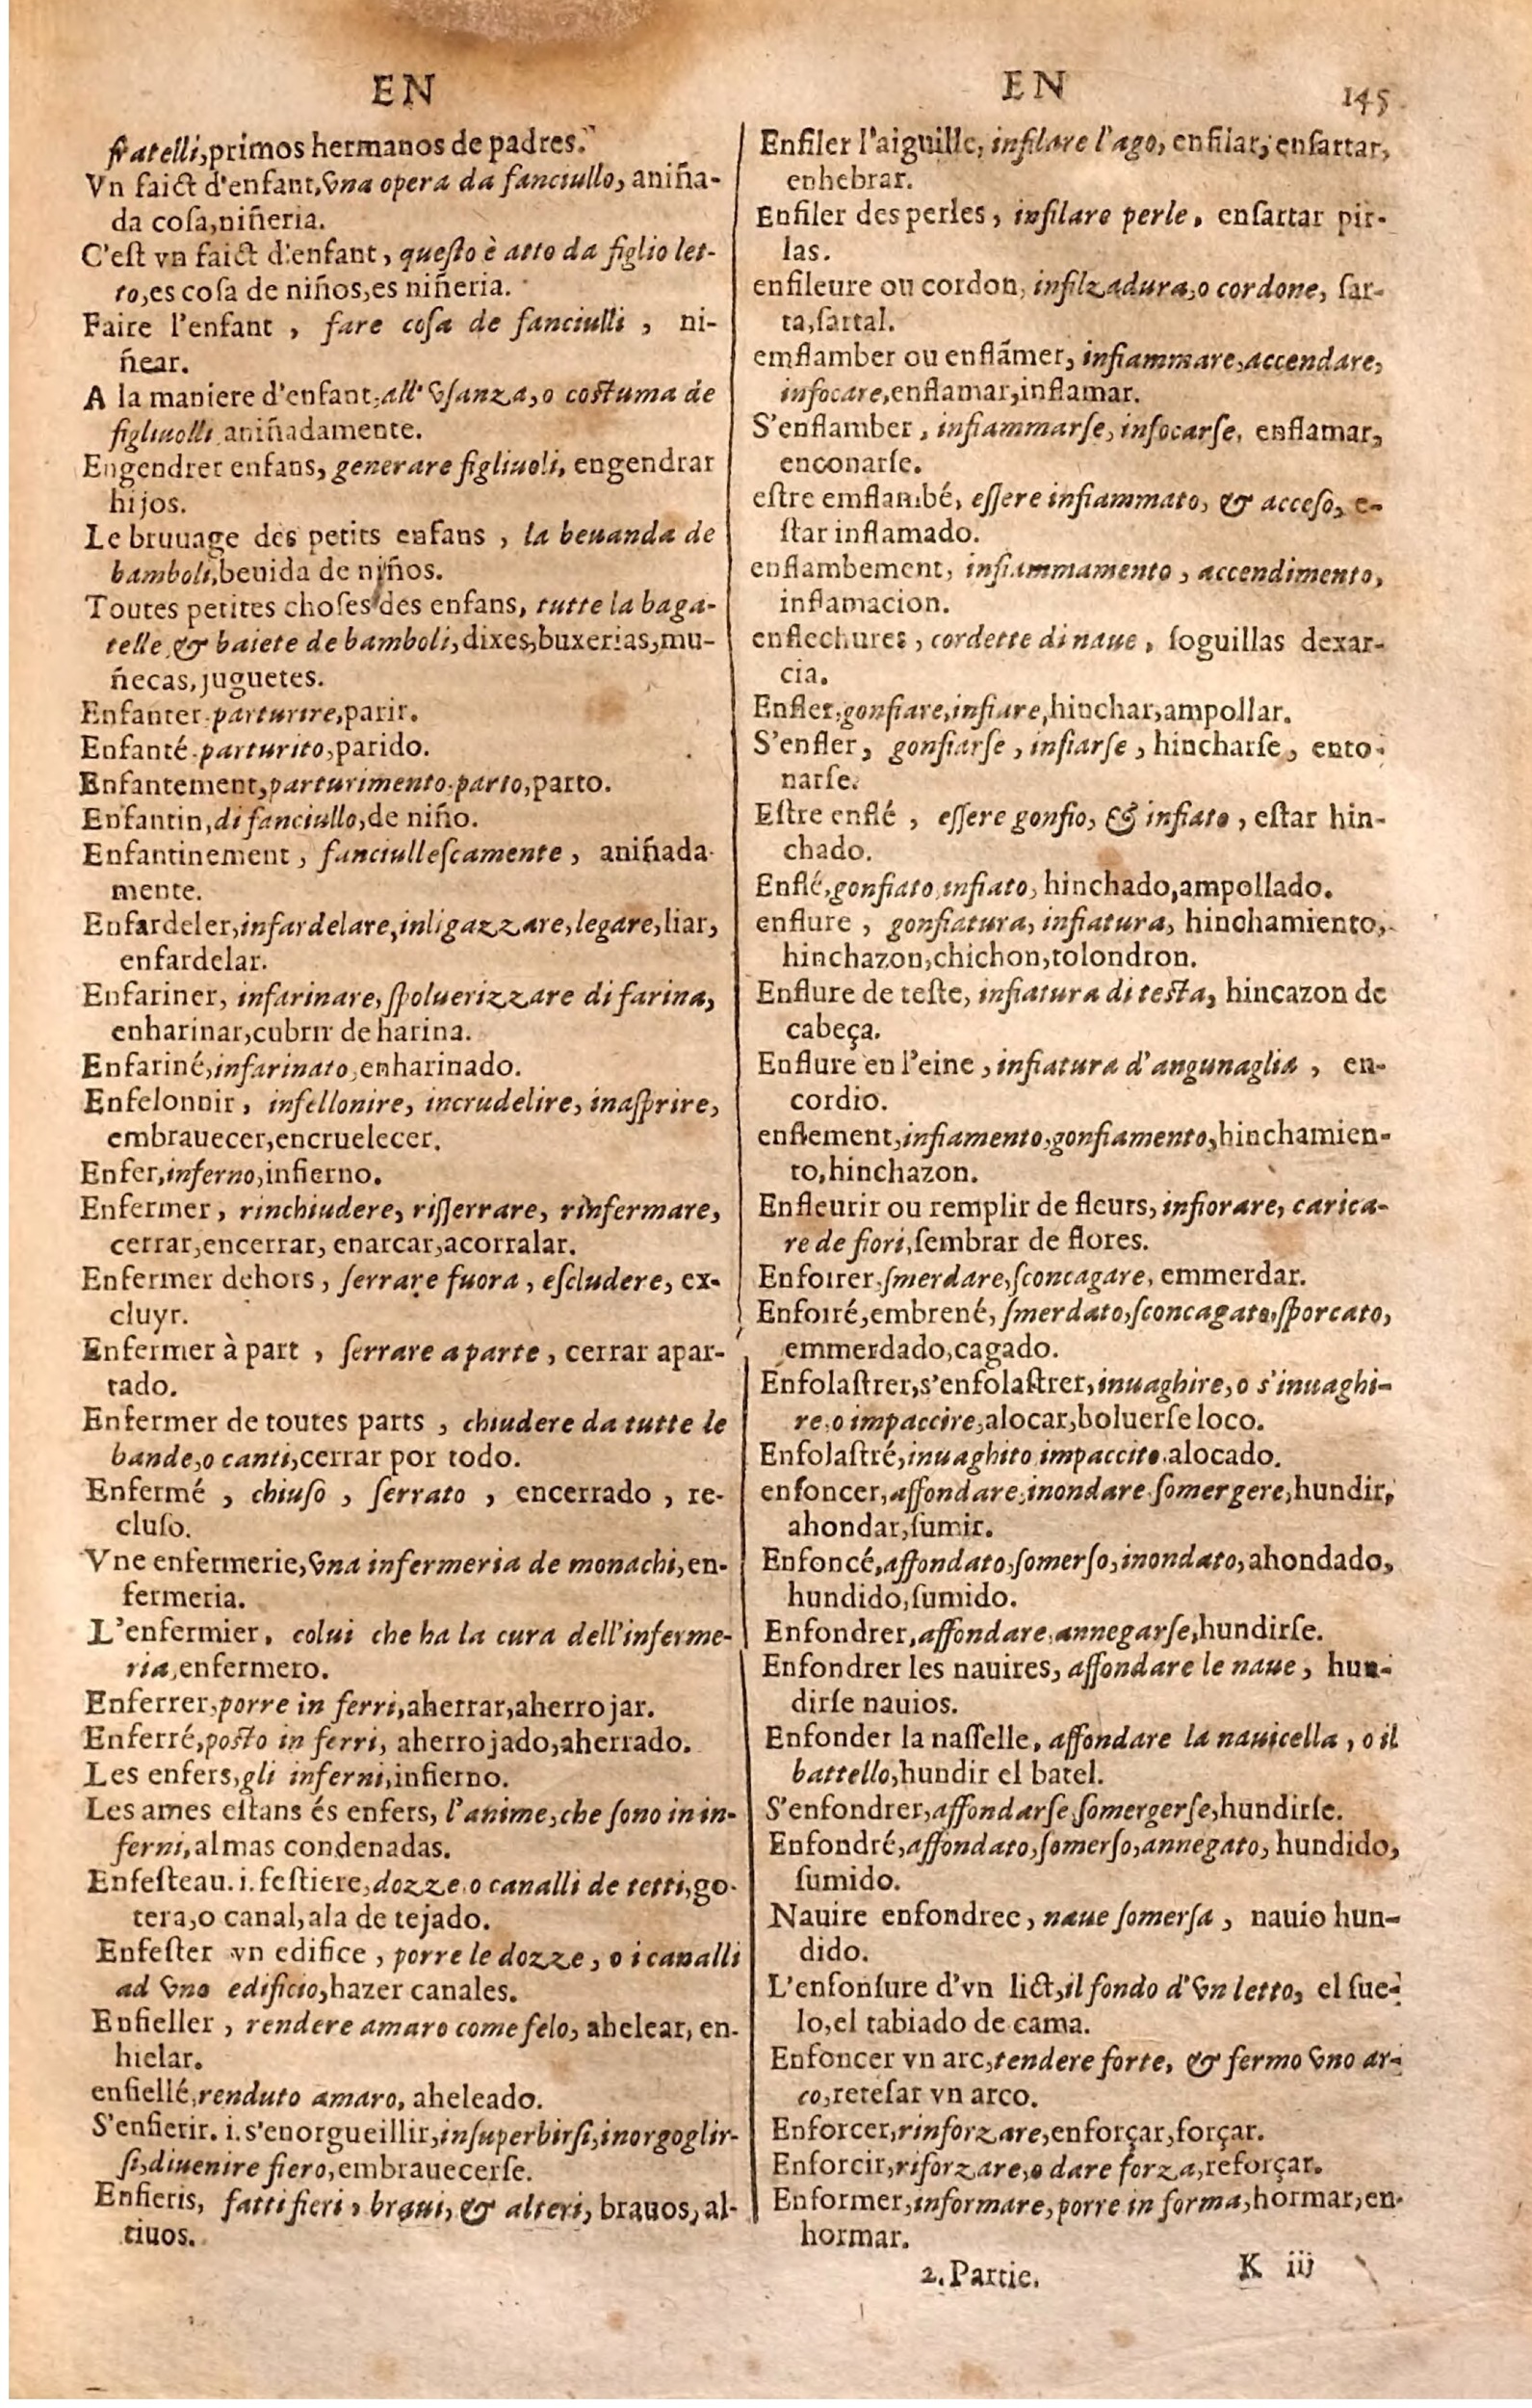 EN
fratelli,primos hermanos de padres.
Vn faict d'enfant,vna opera da fanciullo, aniña-
da coſa,niñeria.
C'eſt vn faict d'enfant, queſto è atto da figlio let-
to,es coſa de niños,es niñeria.
Faire l'enfant , fare coſa de fanciulli , ni-
ñear.
A la maniere d'enfant,all' vſanza,o coſtuma de
figliuolli aniñadamente.
Engendrer enfans, generare figliuoli, engendrar
hijos.
Le bruuage des petits enfans , la beuanda de
bamboli,beuida de niños.
Toutes petites choſes des enfans, tutte la baga-
telle,& baiete de bamboli,dixes,buxerias,mu-
ñecas,juguetes.
Enfanter.parturire,parir.
Enfanté.parturito,parido.
Enfantement,parturimento.parto,parto.
Enfantin,di fanciullo,de niño.
Enfantinement , fanciulleſcamente , aniñada-
mente.
Enfardeler,infardelare,inligazzare,legare,liar,
enfardelar.
Enfariner, infarinare, ſpoluerizzare di farina,
enharinar,cubrir de harina.
Enfariné,infarinato,enharinado.
Enfelonnir , infellonire, incrudelire, inaſprire,
embrauecer,encruelecer.
Enfer,inferno,infierno.
Enfermer , rinchiudere, riſſerrare, rinfermare,
cerrar,encerrar, enarcar,acorralar.
Enfermer dehors , ſerrare fuora , eſcludere, ex-
cluyr.
Enfermer à part , ſerrare a parte , cerrar apar-
tado.
Enfermer de toutes parts , chiudere da tutte le
bande,o canti,cerrar por todo.
Enfermé , chiuſo , ſerrato , encerrado , re-
cluſo.
Vne enfermerie,vna infermeria de monachi,en-
fermeria.
L'enfermier, colui che ha la cura dell'inferme-
ria,enfermero.
Enferrer,porre in ferri,aherrar,aherrojar.
Enferré,poſto in ferri, aherrojado,aherrado.
Les enfers,gli inferni,infierno.
Les ames eſtans és enfers, l'anime,che ſono in in-
ferni,almas condenadas.
Enfeſteau.i.feſtiere,dozze,o canalli de tetti,go-
tera,o canal,ala de tejado.
Enfeſter vn edifice , porre le dozze , o i canalli
ad vno edificio,hazer canales.
Enfieller , rendere amaro come felo, ahelear, en-
hielar.
enfiellé,renduto amaro, aheleado.
S'enfierir. i. s'enorgueillir,inſuperbirſi,inorgoglir-
ſi,diuenire fiero,embrauecerſe.
Enfieris, fatti fieri , braui, & alteri, brauos, al-
tiuos.
EN
145
Enfiler l'aiguille, infilare l'ago, enfilar, enſartar,
enhebrar.
Enfiler des perles , infilare perle , enſartar pir-
las.
enfileure ou cordon, infilzadura,o cordone, ſar-
ta,ſartal.
emflamber ou enflãmer, infiammare,accendare,
infocare,enflamar,inflamar.
S'enflamber , infiammarſe, infocarſe, enflamar,
enconarſe.
eſtre emflambé, eſſere infiammato, & acceſo, e-
ſtar inflamado.
enflambement, infiammamento , accendimento,
inflamacion.
enflechures , cordette di naue , ſoguillas dexar-
cia.
Enfler,gonfiare,infiare,hinchar,ampollar.
S'enfler , gonfiarſe , infiarſe , hincharſe , ento-
narſe.
Eſtre enflé , eſſere gonfio, & infiato , eſtar hin-
chado.
Enflé,gonfiato infiato, hinchado,ampollado.
enflure , gonfiatura, infiatura, hinchamiento,
hinchazon,chichon,tolondron.
Enflure de teſte, infiatura di teſta, hincazon de
cabeça.
Enflure en l'eine , infiatura d'angunaglia , en-
cordio.
enflement,infiamento,gonfiamento,hinchamien-
to,hinchazon.
Enfleurir ou remplir de fleurs, infiorare, carica-
re de fiori,ſembrar de flores.
Enfoirer,ſmerdare,ſconcagare, emmerdar.
Enfoiré,embrené, ſmerdato,ſconcagato,ſporcato,
emmerdado,cagado.
Enfolaſtrer,s'enfolaſtrer,inuaghire,o s'inuaghi-
re,o impaccire,alocar,boluerſe loco.
Enfolaſtré,inuaghito impaccito.alocado.
enfoncer,affondare,inondare ſomergere,hundir,
ahondar,ſumir.
Enfoncé,affondato,ſomerſo,inondato,ahondado,
hundido,ſumido.
Enfondrer,affondare,annegarſe,hundirſe.
Enfondrer les nauires, affondare le naue , hun-
dirſe nauios.
Enfonder la naſſelle, affondare la nauicella , o il
battello,hundir el batel.
S'enfondrer,affondarſe,ſomergerſe,hundirſe.
Enfondré,affondato,ſomerſo,annegato, hundido,
ſumido.
Nauire enfondree, naue ſomerſa , nauio hun-
dido.
L'enfonſure d'vn lict,il fondo d'vn letto, el ſue-
lo,el tabiado de cama.
Enfoncer vn arc,tendere forte, & fermo vno ar-
co,reteſar vn arco.
Enforcer,rinforzare,enforçar,forçar.
Enforcir,riforzare,o dare forza,reforçar.
Enformer,informare, porre in forma,hormar,en-
hormar.
2.Partie.
K iij